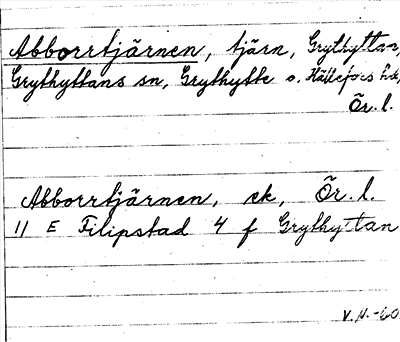 Abborrtjärnen, tjärn, Grythyttan,
Grythyttans sn, Grythytte o. Hällefors hd,
Ör. l.
Abborrtjärnen, ek, Ör. l.
11 E Filipstad 4 f Grythyttan
V. N. -60